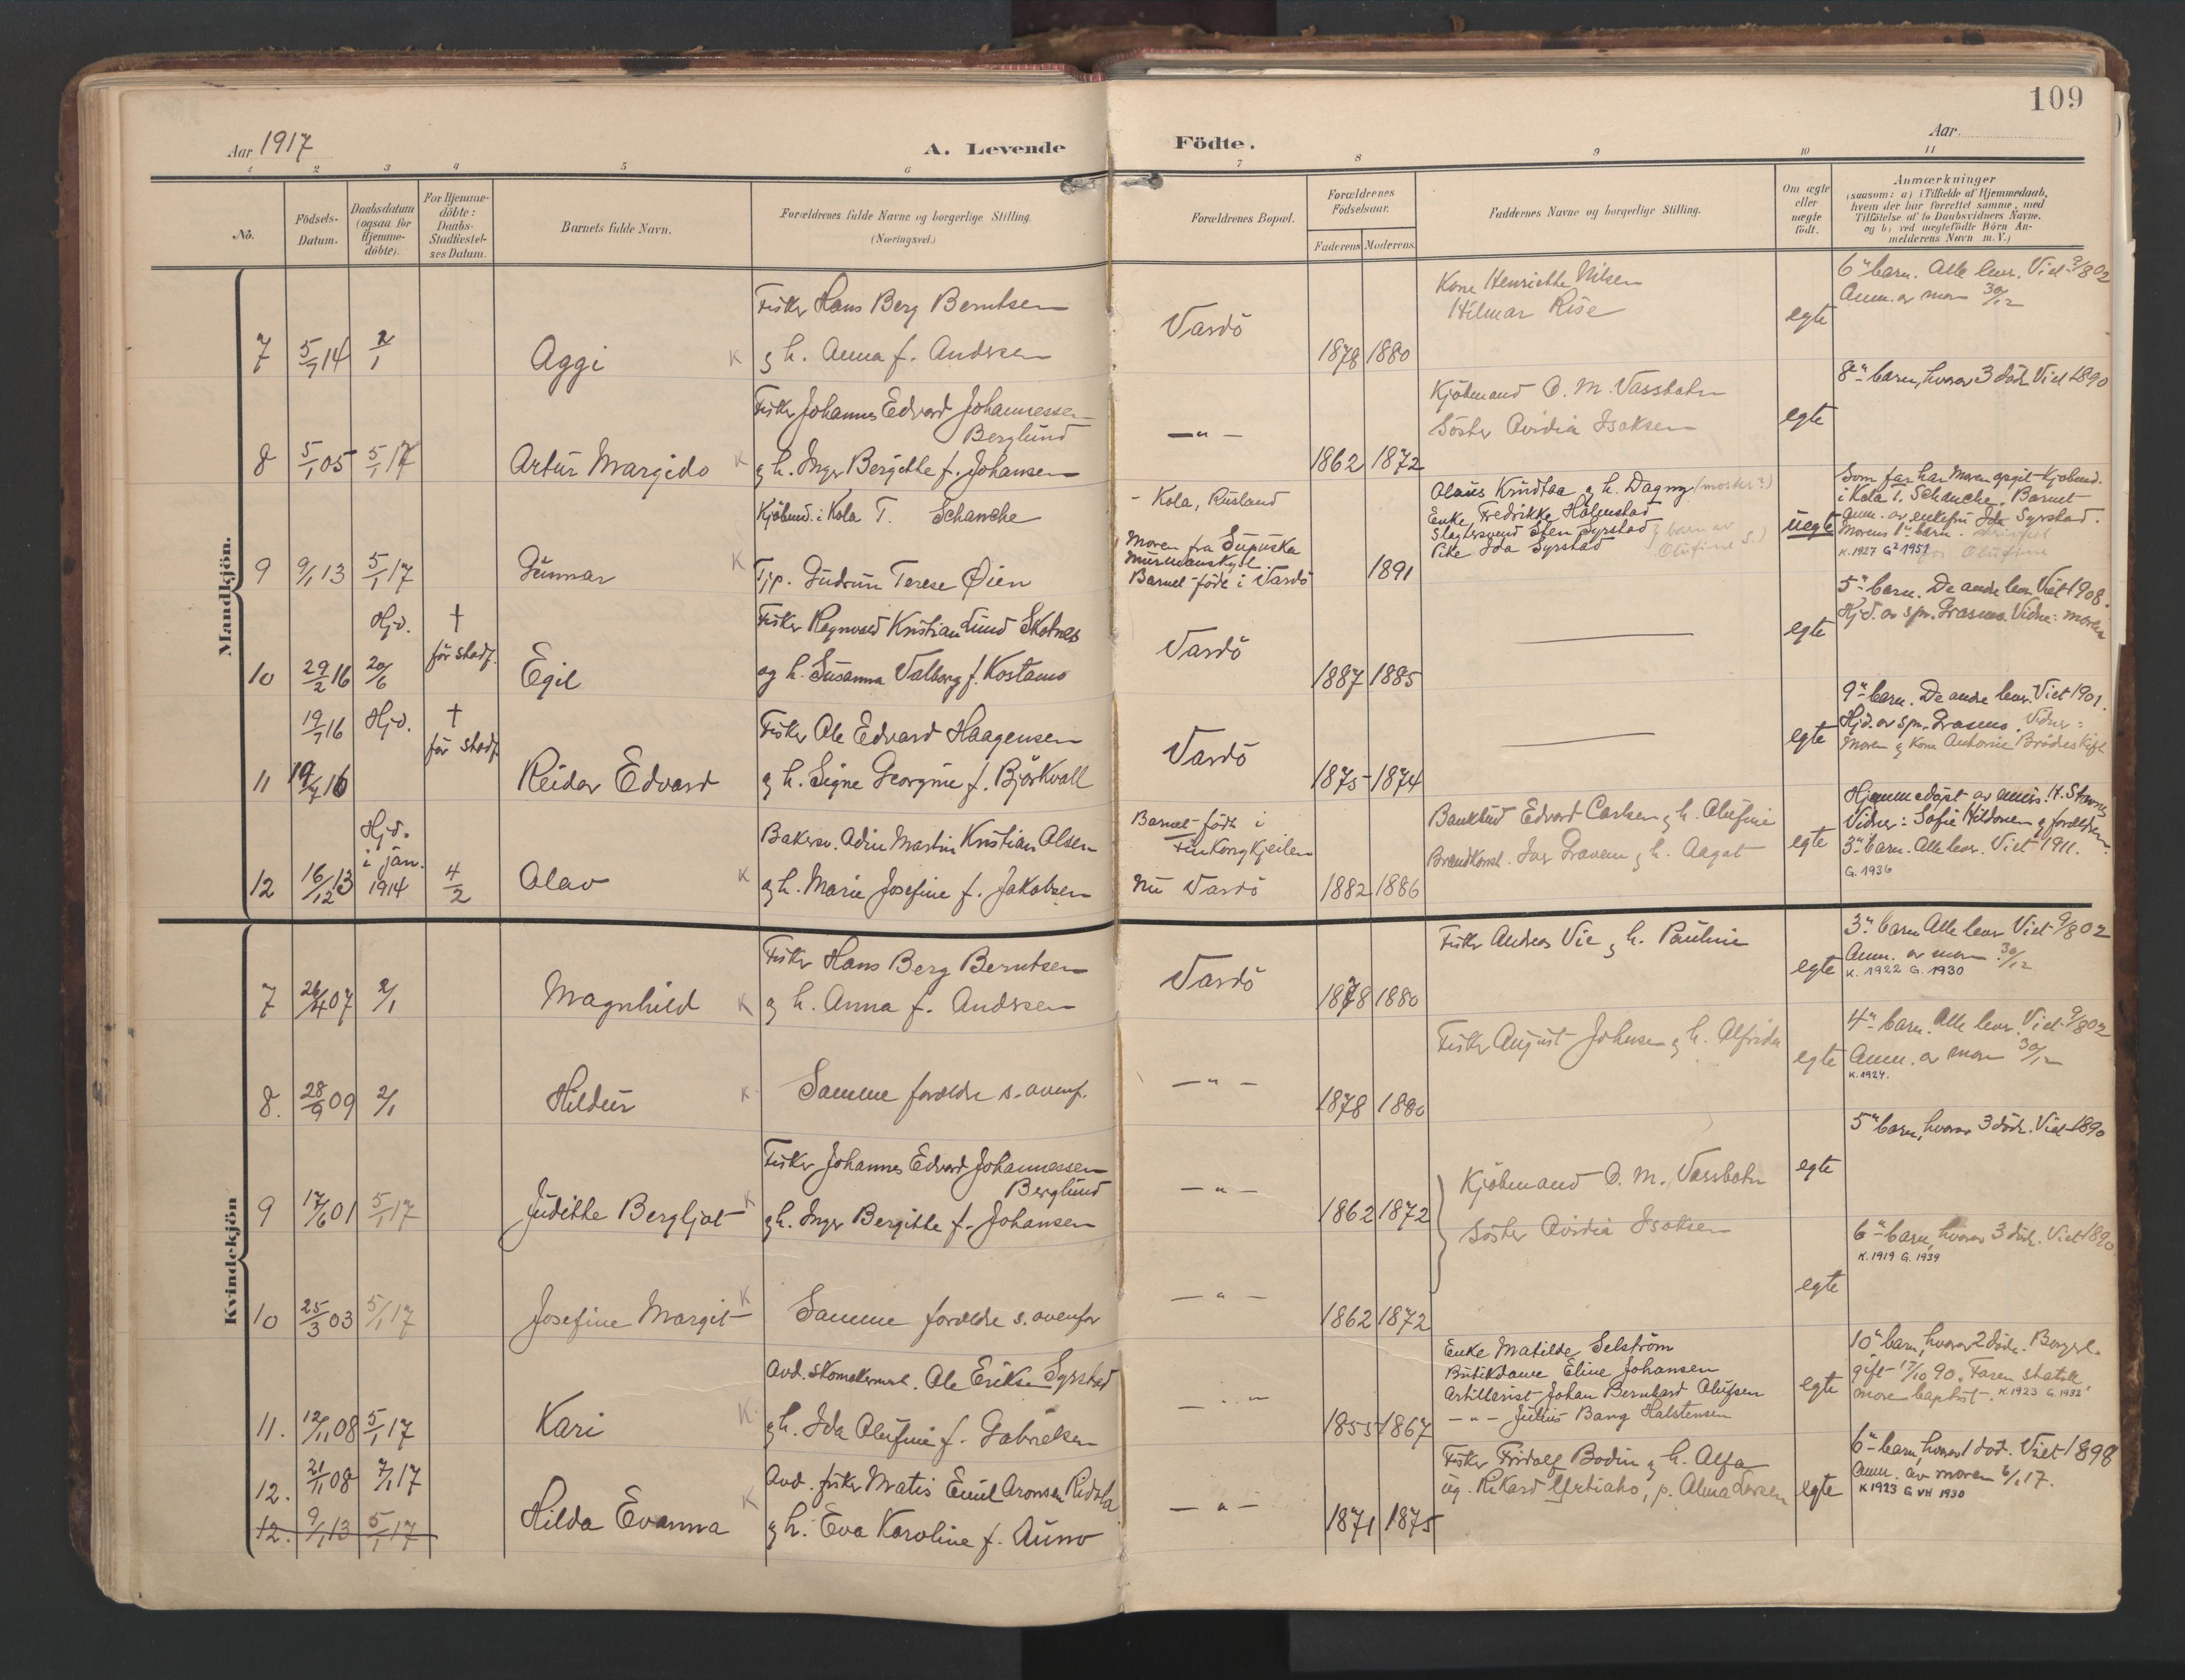 109
Aar 1917
A. Levende Födte.
Aar
1 2 3 4 5 6 7 8 9 10 11
No.
Födsels-Datum.
Daabsdatum (ogsaa for Hjemme-döbte).
For Hjemme-döbte: Daabs-Stadfæstel-ses Datum.
Barnets fulde Navn.
Forældrenes fulde Navne og borgerlige Stilling.
(Næringsvei.)
Forældrenes Bopæl.
Forældrenes Födselsaar.
Faderens Moderens
Faddernes Navne og borgerlige Stilling.
Om ægte eller uægte födt.
Anmærkninger
(saasom: a) i Tilfælde af Hjemmedaab,
hvem der har forrettet samme, med
Tilföielse af to Daabsvidners Navne,
og b) ved uægtefödte Börn An-
melderens Navn m. V.)
Mandkjön.
7 5/7 14 2/1 Aggi K
Fisker Hans Berg Berntsen
og h. Anna f. Andrsen
Vardö 1878 1880
Kone Henriette Nilsen
Hilmar Rise
egte
6te barn. Alle lever. Viet 9/8 02
Anm. av mor 30/12
8 5/1 05 5/1 17 Artur Margido K
Fisker Johannes Edvard Johannessen
Berglund
og h. Inger Bergitthe f. Johansen
— " — 1862 1872
Kjöbmand O. M. Vassbotn
Söster Ovidia Isaksen
egte
8de barn, hvorav 3 död. Viet 1890
9 9/1 13 5/1 17 Gunnar K
Kjöbmd. i Kola T. Schanche
Tjp. Gudrun Terese Öien
- Kola, Rusland
Moren fra Supuska
Murmanskyst.
Barnet födt i Vardö
1891
Olaus Kindtaa og h. Dagny (moster?)
Enke Fredrikke Holmstad
Slagtersvend Sten Syrstad
Pike Ida Syrstad
uegte
Som far har Moren opgit Kjøbmd.
i Kola T. Schanche. Barnet
anm. av enkefru Ida Syrstad.
Morens 1te barn.
K. 1927 G2 1951
10 29/2 16 Hjd. 20/6 † för stadf. Egil
Fisker Regnvald Kristian Lund Skotnes
og h. Susanna Valborg f. Kostamo
Vardö 1887 1885
egte
5te barn. De andre lever Viet 1908.
Hjd. av spr. Grasmo. Vidne: moren
11 19/7 16 Hjd. † för stadf.
19/7 16 Reidar Edvard
Fisker Ole Edvard Haagensen
og h. Signe Georgine f. Björkvall
Vardö 1875 1874
egte
9de barn. De andre lever. Viet 1901.
Hjd. av spr. Grasmo. Vidner:
Moren og Kone Antonie Brodreskift
12 16/12 13 Hjd. i jan. 1914 4/2 Olav K
Bakersv. Adin Martin Kristian Olsen
og h. Marie Josefine f. Jakobsen
Barnet födt i
Finkongkjeilen
Nu Vardö 1882 1886
Bankbud Edvard Carlsen og h. Olufine
Brandkonst. Ivar Gravem og h. Aagot
egte
Hjemmedöpt av emis. H. Stavne
Vidner: Sofie Hildonen og forældren.
3de barn. Alle lever. Viet 1911.
G. 1936
Kvindekjön
7 26/4 07 2/1 Magnhild K
Fisker Hans Berg Berntsen
og h. Anna f. Andrsen
Vardö 1878 1880
Fisker Andreas Vie og h. Pauline
egte
3de barn Alle lever Viet 9/8 02
Anm. av mor 30/12
K. 1922 G. 1930
8. 28/9 09 2/1 Hildur K
Samme forældre s. ovenf.
— " — 1878 1880
Fisker August Johnsen og h. Alfrida
egte
4de barn. Alle lever. Viet 9/8 02
Anm. av mor 30/12
K. 1924.
9 17/6 01 5/1 17 Judithe Bergljot K
Fisker Johannes Edvard Johannessen
Berglund
og h. Inger Bergitthe f. Johansen
— " — 1862 1872
Kjöbmand O. M. Vassbotn
Söster Ovidia Isaksen
egte
5te barn, hvorav 3 död. Viet 1890
10 25/3 03 5/1 17 Josefine Margit K
Samme forældre s. ovenfor
— " — 1862 1872
egte
6te barn, hvorav 3 död. Viet 1890.
K. 1919 G. 1939
11. 12/11 08 5/1 17 Kari K
Avd. skomakermst. Ole Eriksen Syrstad
og h. Ida Olufine f. Gabrielsen
— " — 1855 1867
Enke Matilde Selström
Butikdame Eline Johansen
Artillerist Johan Bernhard Olufsen
— " — Julius Bang Halstensen
egte
10de barn, hvorav 2 döde. Borgerl.
gift 17/10 90. Faren statsk.
mor baptist. K. 1923 G. 1932
12. 21/1 08 7/1 17 Hilda Evanna K
12. 9/1 13 5/1 17
Avd. fisker Matis Emil Aronsen Ridola
og h. Eva Karoline f. Auno
— " — 1871 1875
Fisker Fridolf Bodin og h. Alfa
ug. Rikard Yrtiaho, p. Alma Larsen
egte
6te barn, hvorav 1 död. Viet 1898
Anm. av moren 6/1 17.
K 1923 G VH 1930